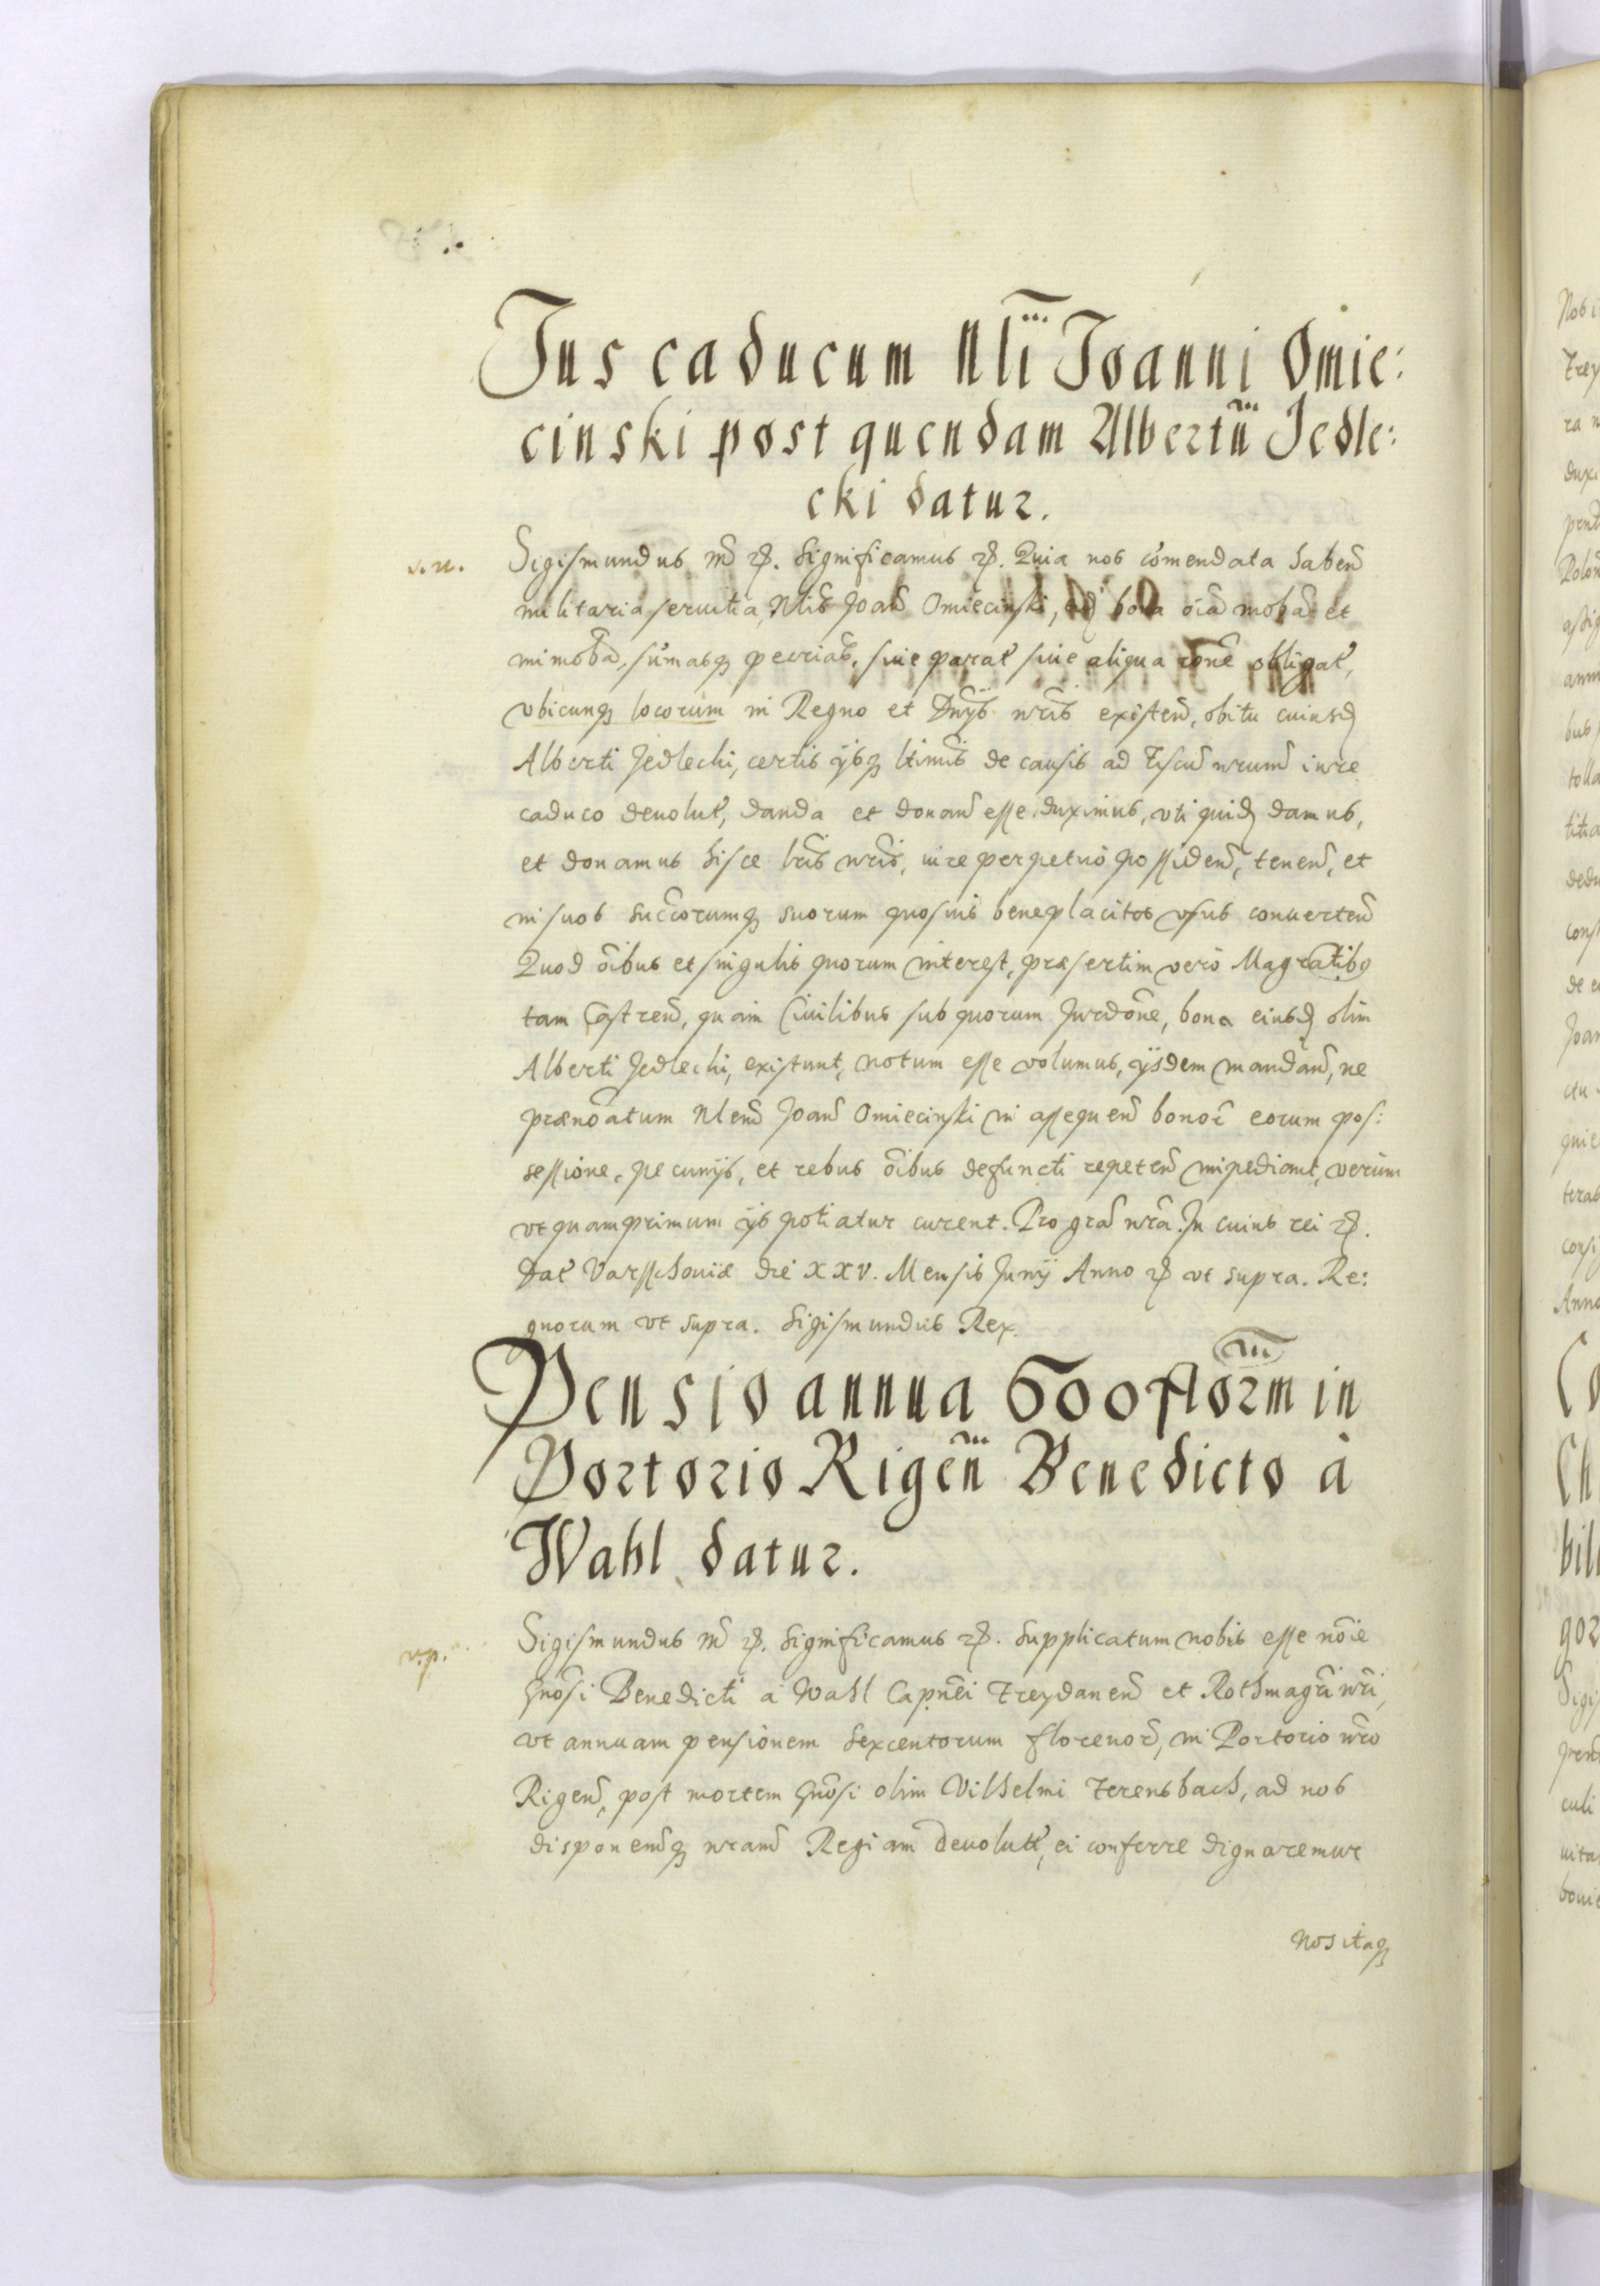 Jus caducum Nli Joanni Omie:
cinski post quendam Albertū Jedle:
cki datur.
s.n. Sigismundus III etc. Significamus etc. Quia nos com̄endata haben̄
militaria seruitia, Nlis Joan̄ Omiecinski, ei bona oīa mob̄a et
immob̄a, sum̄asq; pecrias̄, siue parat̄ siue aliqua rōne obligat̄,
vbicunq; locorum in Regno et Dn̄ijs nr̄is existen̄, obitu cuiusd̄
Alberti Jedlecki, certis ijsq; ltimis̄ de causis ad Fiscū nrum̄ iure
caduco deuolut̄, danda et donan̄ esse duximus, vti quid̄ damus,
et donamus hisce lr̄is nr̄is, iure perpetuo possiden̄, tenen̄, et
in suos succ̄orumq; suorum quosuis beneplacitos vsus conuerten̄
Quod oībus et singulis quorum interest, præsertim vero Magratibq
tam Castren̄, quam Ciuilibus sub quorum Jurdōne, bona eiusd̄ olim
Alberti Jedlecki, existunt, notum esse volumus, ijsdem mandan̄, ne
prænoātum Nlem̄ Joan̄ Omiecinski in assequen̄ bonor̄ eorum pos:
sessione, pecunijs, et rebus oībus defuncti repeten̄ impediant, verum
vt quamprimum ijs potiatur curent. Pro grā nr̄a. In cuius rei etc.
Dat̄ Varsschouiæ die XXV. Mensis Junij Anno etc vt supra. Re:
gnorum vt supra. Sigismundus Rex.
Pensio annua 600 florm̄ in
Portorio Rigen̄ Benedicto à
Wahl datur.
v.p. Sigismundus III etc. Significamus etc. Supplicatum nobis esse noīe
Gnōsi Benedicti à Wahl Capnēi Treydanen̄ et Rothmagr̄i nr̄i,
vt annuam pensionem sexcentorum florenor̄, in Portorio nr̄o
Rigen̄, post mortem Gnōsi olim Vilhelmi Ferensbach, ad nos
disponen̄q; nram̄ Regiam deuolut̄, ei conferre dignaremur
Nos itaq;